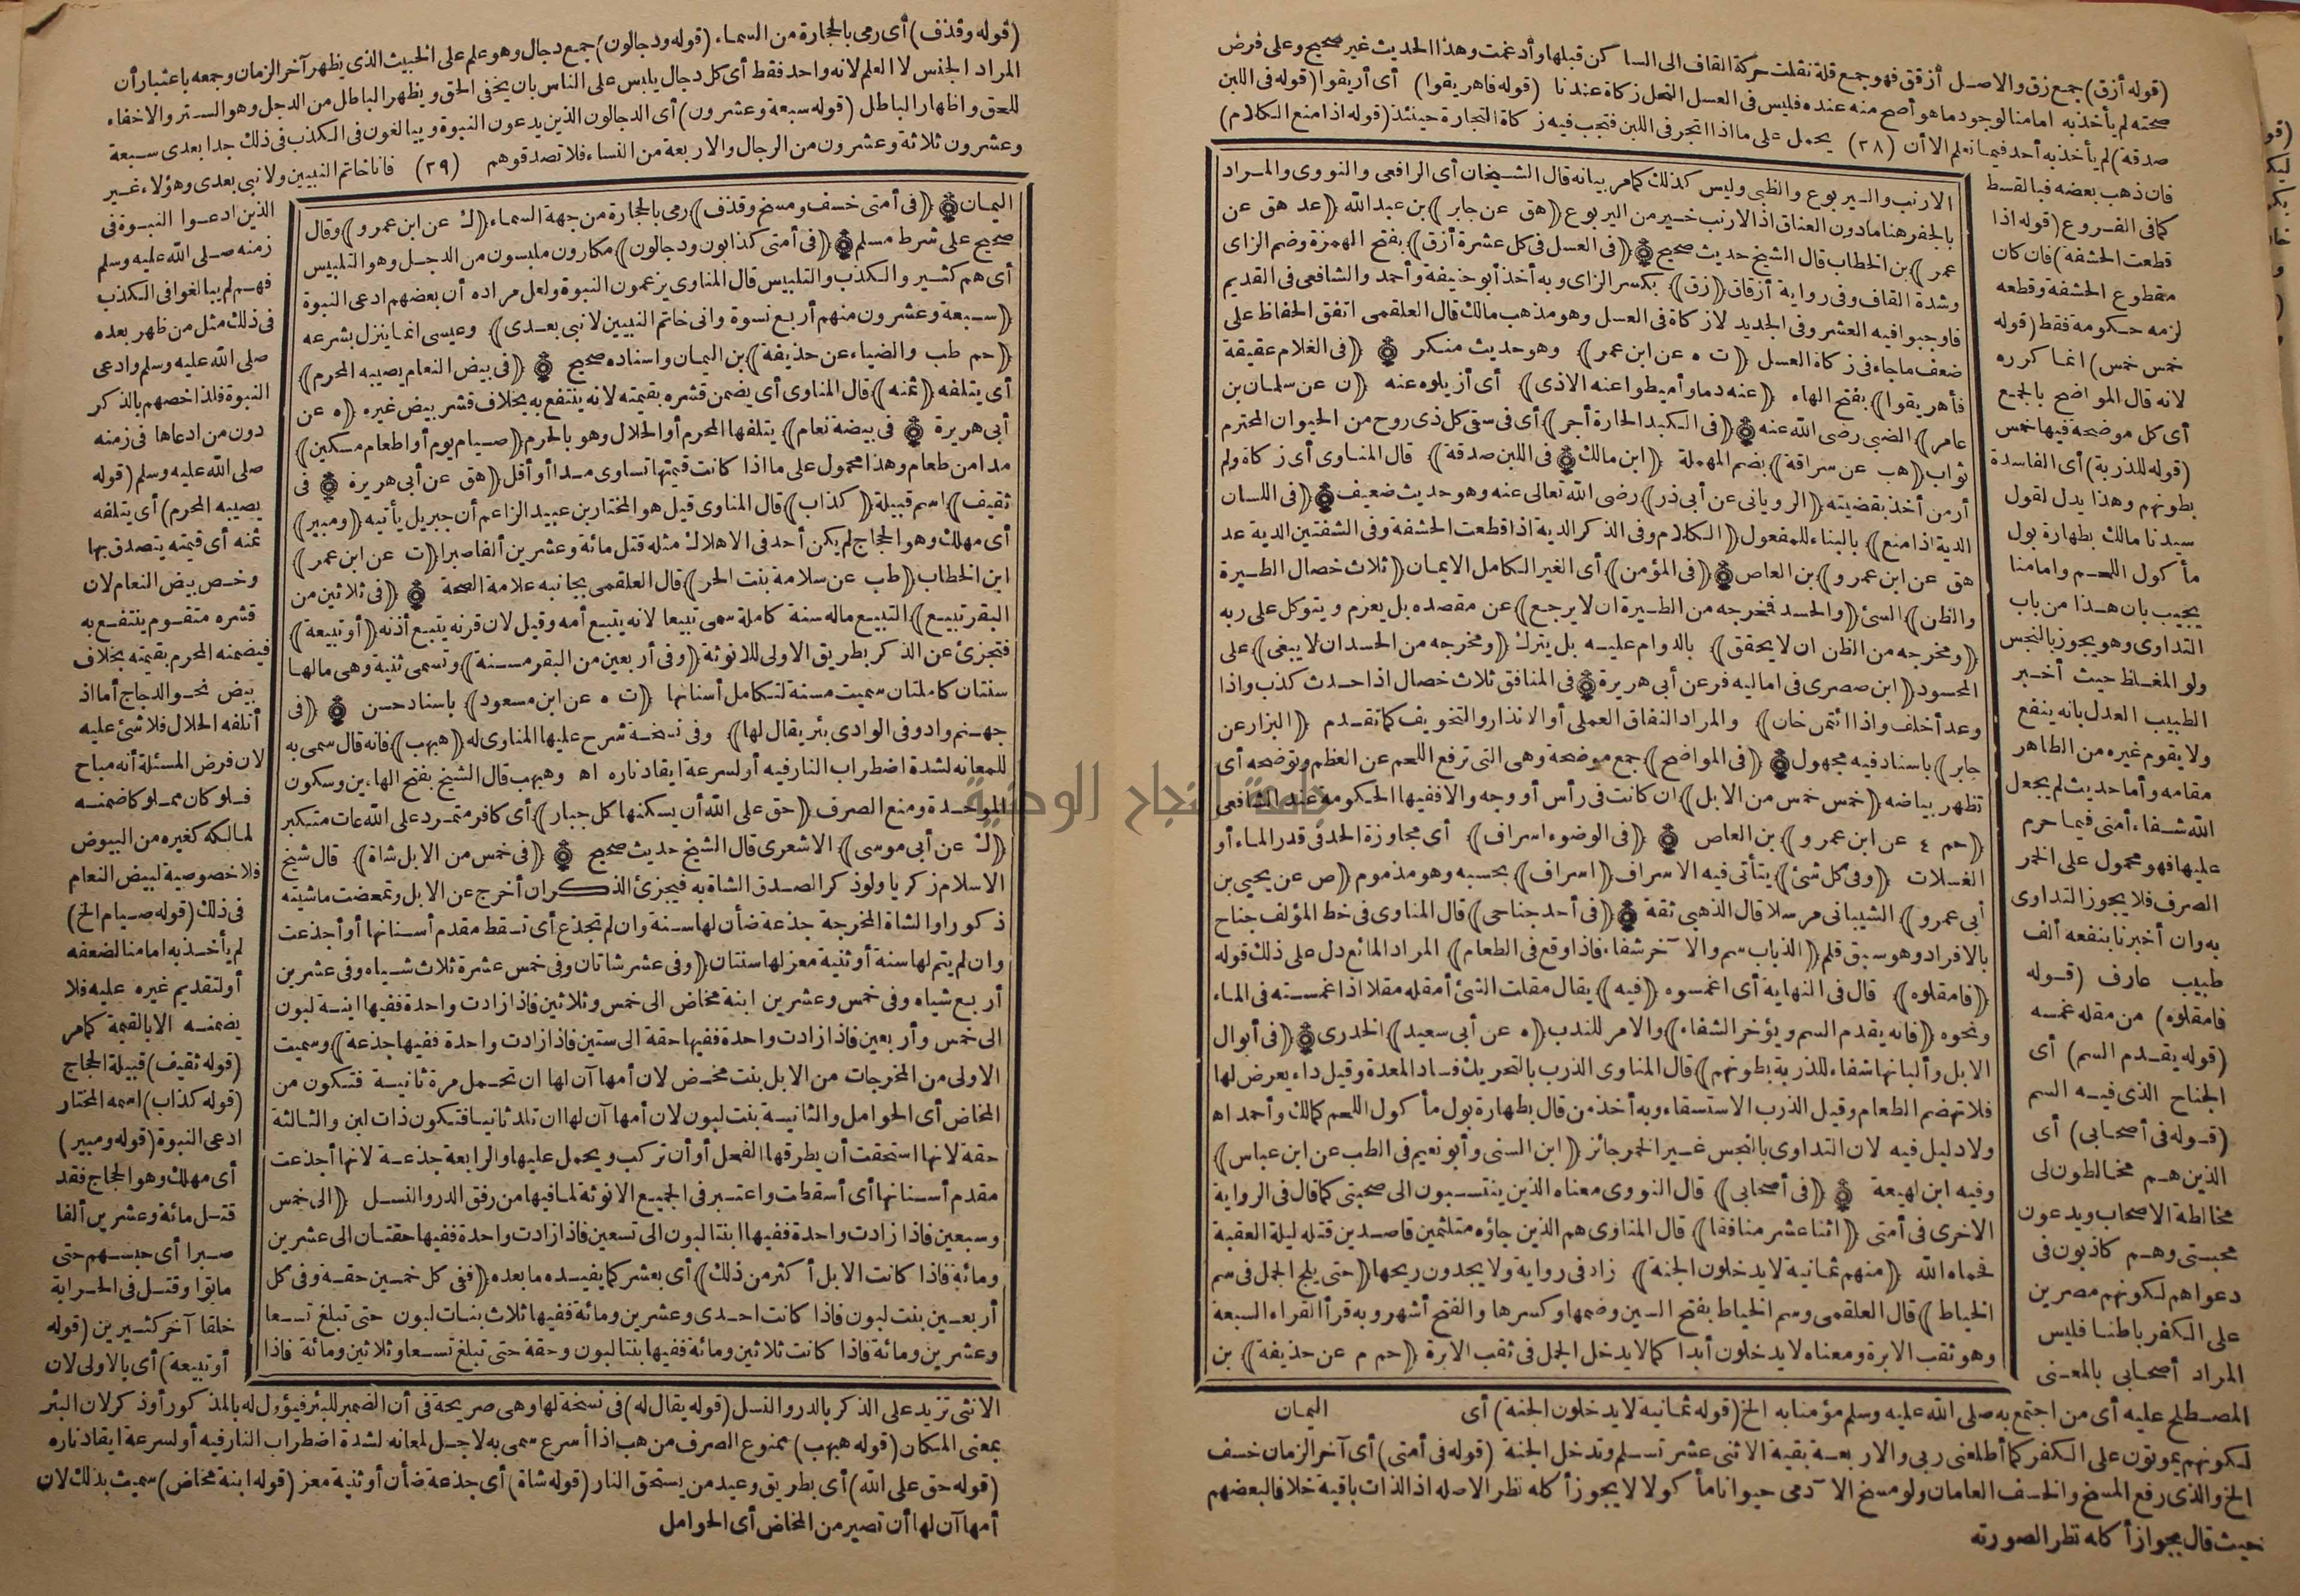 (قوله أزق) جمع زق والاصل أزقق فهو جمع قلة نقلت حركة القاف الى الساكن قبلها وأدغمت وهذا الحديث غير صحيح وعلى فرض
صحته لم يأخذ به امامنا لوجود ما هو أصح منه عنده فليس فى العسل النحل زكاة عندنا (قوله فاهريقوا) أى أريقوا (قوله فى اللبن
صدقة) لم يأخذ به أحد فيما نعلم الا أن (٣٨) يحمل على ما اذا اتجر فى اللبن فتجب فيه زكاة التجارة حينئذ (قوله اذا منع الكلام)
فان ذهب بعضه فبالقسط
كما فى الفروع (قوله اذا
قطعت الحشفة) فان كان
مقطوع الحشفة وقطعه
لزمه حكومة فقط (قوله
خمس خمس) انما كرره
لانه قال المواضح بالجمع
أى كل موضحة فيها خمس
(قوله للذربة) أى الفاسدة
بطونهم وهذا يدل لقول
سيدنا مالك بطهارة بول
مأكول اللحم وامامنا
يجيب بان هذا من باب
التداوى وهو يجوز بالنجس
ولو المغلظ حيث أخبر
الطبيب العدل بانه ينفع
ولا يقوم غيره من الطاهر
مقامه وأما حديث لم يجعل
الله شفاء أمتى فيما حرم
عليها فهو محمول على الخمر
الصرف فلا يجوز التداوى
به وان أخبرنا بنفعه ألف
طبيب عارف (قوله
فامقلوه) من مقله غمسه
(قوله يقدم السم) أى
الجناح الذى فيه السم
(قوله فى أصحابى) أى
الذين هم مخالطون لى
مخالطة الاصحاب ويدعون
محبتى وهم كاذبون فى
دعواهم لكونهم مصرين
على الكفر باطنا فليس
المراد أصحابى بالمعنى
الارنب واليربوع والظبى وليس كذلك كما مر بيانه قال الشيخان أى الرافعى والنووى والمراد
بالجفر هنا ما دون العناق اذ الارنب خير من اليربوع (هق عن جابر) بن عبد الله (عد هق عن
عمر) بن الخطاب قال الشيخ حديث صحيح (فى العسل فى كل عشرة أزق) بفتح الهمزة وضم الزاى
وشدة القاف وفى رواية أزقاق (زق) بكسر الزاى وبه أخذ أبو حنيفه وأحمد والشافعى فى القديم
فاوجبوا فيه العشر وفى الجديد لا زكاة فى العسل وهو مذهب مالك قال العلقمى اتفق الحفاظ على
ضعف ما جاء فى زكاة العسل (ت ه عن ابن عمر) وهو حديث منكر (فى الغلام عقيقة
فأهريقوا) بفتح الهاء (عنه دما وأميطوا عنه الاذى) أى أزيلوه عنه (ن عن سلمان بن
عامر) الضبى رضى الله عنه (فى الكبد الحارة أجر) أى فى سقى كل ذى روح من الحيوان المحترم
ثواب (هب عن سراقة) بضم المهملة (ابن مالك فى اللبن صدقة) قال المناوى أى زكاة ولم
أر من أخذ بقضيته (الرويانى عن أبى ذر) رضى الله تعالى عنه وهو حديث ضعيف (فى اللسان
الدية اذا منع) بالبناء للمفعول (الكلام وفى الذكر الدية اذا قطعت الحشفة وفى الشفتين الدية عد
هق عن ابن عمرو) بن العاص (فى المؤمن) أى الغير الكامل الايمان (ثلاث خصال الطيرة
والظن) السئ (والحسد فمخرجه من الطيرة ان لا يرجع) عن مقصده بل يعزم ويتوكل على ربه
(ومخرجه من الظن ان لا يحقق) بالدوام عليه بل يترك (ومخرجه من الحسد ان لا يبغى) على
المحسود (ابن صصرى فى اماليه فر عن أبى هريرة فى المنافق ثلاث خصال اذا حدث كذب واذا
وعد أخلف واذا ائتمن خان) والمراد النفاق العملى أو الانذار والتخويف كما تقدم (البزار عن
جابر) باسناد فيه مجهول (فى المواضح) جمع موضحة وهى التى ترفع اللحم عن العظم وتوضحه أى
تظهر بياضه (خمس خمس من الابل) ان كانت فى رأس أو وجه والا ففيها الحكومة عند الشافعى
(حم ٤ عن ابن عمرو) بن العاص (فى الوضوء اسراف) أى مجاوزة الحد فى قدر الماء أو
الغسلات (وفى كل شئ) يتأتى فيه الاسراف (اسراف) بحسبه وهو مذموم (ص عن يحيى بن
أبى عمرو) الشيبانى مرسلا قال الذهبى ثقة (فى أحد جناحى) قال المناوى فى خط المؤلف جناح
بالافراد وهو سبق قلم (الذباب سم والآخر شفاء فاذا وقع فى الطعام) المراد المائع دل على ذلك قوله
(فامقلوه) قال فى النهاية أى اغمسوه (فيه) يقال مقلت الشئ أمقله مقلا اذا غمسته فى الماء
ونحوه (فانه يقدم السم ويؤخر الشفاء) والامر للندب (ه عن أبى سعيد) الخدرى (فى أبوال
الابل وألبانها شفاء للذربة بطونهم) قال المناوى الذرب بالتحريك فساد المعدة وقيل داء يعرض لها
فلا تهضم الطعام وقيل الذرب الاستسقاء وبه أخذ من قال بطهارة بول مأكول اللحم كمالك وأحمد اه
ولا دليل فيه لان التداوى بالنجس غير الخمر جائز (ابن السنى وأبو نعيم فى الطب عن ابن عباس)
وفيه ابن لهيعة (فى أصحابى) قال النووى معناه الذين ينتسبون الى صحبتى كما قال فى الرواية
الاخرى فى أمتى (اثنا عشر منافقا) قال المناوى هم الذين جاؤه متلثمين قاصدين قتله ليلة العقبة
فحماه الله (منهم ثمانية لا يدخلون الجنة) زاد فى رواية ولا يجدون ريحها (حتى يلج الجمل فى سم
الخياط) قال العلقمى وسم الخياط بفتح السين وضمها وكسرها والفتح أشهر وبه قرأ القراء السبعة
وهو ثقب الابرة ومعناه لا يدخلون أبدا كما لا يدخل الجمل فى ثقب الابرة (حم م عن حذيفة) بن
المصطلح عليه أى من اجتمع به صلى الله عليه وسلم مؤمنا به الخ (قوله ثمانية لا يدخلون الجنة) أى اليمان
لكونهم يموتون على الكفر كما أطلعنى ربى والاربعة بقية الاثنى عشر تسلم وتدخل الجنة (قوله فى أمتى) أى آخر الزمان خسف
الخ والذى رفع المسخ والخسف العامان ولو مسخ الآدمى حيوانا مأكولا لا يجوز أكله نظر الاصله اذ الذات باقية خلافا لبعضهم
حيث قال بجواز أكله نظر الصورته
جامعة النجاح الوطنية
(قوله وقذف) أى رمى بالحجارة من السماء (قوله ودجالون) جمع دجال وهو علم على الخبيث الذى يظهر آخر الزمان وجمعه باعتبار أن
المراد الجنس لا العلم لانه واحد فقط أى كل دجال يلبس على الناس بان يخفى الحق ويظهر الباطل من الدجل وهو الستر والاخفاء
للحق واظهار الباطل (قوله سبعة وعشرون) أى الدجالون الذين يدعون النبوة ويبالغون فى الكذب فى ذلك جدا بعدى سبعة
وعشرون ثلاثة وعشرون من الرجال والاربعة من النساء فلا تصدقوهم (٣٩) فانا خاتم النبيين ولا نبى بعدى وهؤلاء غير
اليمان (فى أمتى خسف ومسخ وقذف) رمى بالحجارة من جهة السماء (ك عن ابن عمرو) وقال
صحيح على شرط مسلم (فى أمتى كذابون ودجالون) مكارون ملبسون من الدجل وهو التلبيس
أى هم كثير والكذب والتلبيس قال المناوى يزعمون النبوة ولعل مراده أن بعضهم ادعى النبوة
(سبعة وعشرون منهم أربع نسوة وانى خاتم النبيين لا نبى بعدى) وعيسى انما ينزل بشرعه
(حم طب والضياء عن حذيفة) بن اليمان واسناده صحيح (فى بيض النعام يصيبه المحرم)
أى يتلفه (ثمنه) قال المناوى أى يضمن قشره بقيمته لانه ينتفع به بخلاف قشر بيض غيره (ه عن
أبى هريرة فى بيضة نعام) يتلفها المحرم أو الحلال وهو بالحرم (صيام يوم أو اطعام مسكين)
مدا من طعام وهذا محمول على ما اذا كانت قيمتها تساوى مدا أو أقل (هق عن أبى هريرة فى
ثقيف) اسم قبيلة (كذاب) قال المناوى قيل هو المختار بن عبيد الزاعم أن جبريل يأتيه (ومبير)
أى مهلك وهو الحجاج لم يكن أحد فى الاهلاك مثله قتل مائة وعشرين ألفا صبرا (ت عن ابن عمر)
ابن الخطاب (طب عن سلامة بنت الحر) قال العلقمى بجانبه علامة الصحة (فى ثلاثين من
البقر تبيع) التبيع ماله سنة كاملة سمى تبيعا لانه يتبع أمه وقيل لان قرنه يتبع أذنه (أو تبيعة)
فتجزئ عن الذكر بطريق الاولى للانوثة (وفى أربعين من البقر مسنة) وتسمى ثنية وهى مالها
سنتان كاملتان سميت مسنة لتكامل أسنانها (ت ه عن ابن مسعود) باسناد حسن (فى
جهنم واد وفى الوادى بئر يقال لها) وفى نسخة شرح عليها المناوى له (هبهب) فانه قال سمى به
للمعانه لشدة اضطراب النار فيه أو لسرعة ايقاد ناره اه وهبهب قال الشيخ بفتح الهاءين وسكون
الموحدة ومنع الصرف (حق على الله أن يسكنها كل جبار) أى كافر متمرد على الله عات متكبر
(ك عن أبى موسى) الاشعرى قال الشيخ حديث صحيح (فى خمس من الابل شاة) قال شيخ
الاسلام زكريا ولو ذكر الصدق الشاة به فيجزئ الذكر ان أخرج عن الابل وتمحضت ماشيته
ذكورا والشاة المخرجة جذعة ضأن لها سنة وان لم تجذع أى تسقط مقدم أسنانها أو أجذعت
وان لم يتم لها سنة أو ثنية معز لها سنتان (وفى عشر شاتان وفى خمس عشرة ثلاث شياه وفى عشرين
أربع شياه وفى خمس وعشرين ابنة مخاض الى خمس وثلاثين فاذا زادت واحدة ففيها ابنة لبون
الى خمس وأربعين فاذا زادت واحدة ففيها حقة الى ستين فاذا زادت واحدة ففيها جذعة) وسميت
الاولى من المخرجات من الابل بنت مخض لان أمها آن لها ان تحمل مرة ثانية فتكون من
المخاض أى الحوامل والثانية بنت لبون لان أمها آن لها ان تلد ثانيا فتكون ذات لبن والثالثة
حقة لانها استحقت أن يطرقها الفحل أو أن تركب ويحمل عليها والرابعة جذعة لانها أجذعت
مقدم أسنانها أى أسقطت واعتبر فى الجميع الانوثة لما فيها من رفق الدر والنسل (الى خمس
وسبعين فاذا زادت واحدة ففيها ابنتا لبون الى تسعين فاذا زادت واحدة ففيها حقتان الى عشرين
ومائة فاذا كانت الابل أكثر من ذلك) أى بعشر كما يفيده ما بعده (ففى كل خمسين حقة وفى كل
أربعين بنت لبون فاذا كانت احدى وعشرين ومائة ففيها ثلاث بنات لبون حتى تبلغ تسعا
وعشرين ومائة فاذا كانت ثلاثين ومائة ففيها بنتا لبون وحقة حتى تبلغ تسعا وثلاثين ومائة فاذا
الذين ادعوا النبوة فى
زمنه صلى الله عليه وسلم
فهم لم يبالغوا فى الكذب
فى ذلك مثل من ظهر بعده
صلى الله عليه وسلم وادعى
النبوة فلذا خصهم بالذكر
دون من ادعاها فى زمنه
صلى الله عليه وسلم (قوله
يصيبه المحرم) أى يتلفه
ثمنه أى قيمته يتصدق بها
وخص بيض النعام لان
قشره متقوم ينتفع به
فيضمنه المحرم بقيمته بخلاف
بيض نحو الدجاج أما اذ
أتلفه الحلال فلا شئ عليه
لان فرض المسئلة أنه مباح
فلو كان مملوكا ضمنه
لمالكه كغيره من البيوض
فلا خصوصية لبيض النعام
فى ذلك (قوله صيام الخ)
لم يأخذ به امامنا لضعفه
أو لتقديم غيره عليه فلا
يضمنه الا بالقيمة كما مر
(قوله ثقيف) قبيلة الحجاج
(قوله كذاب) اسمه المختار
ادعى النبوة (قوله ومبير)
أى مهلك وهو الحجاج فقد
قتل مائة وعشرين ألفا
صبرا أى حبسهم حتى
ماتوا وقتل فى الحرابة
خلقا آخر كثيرين (قوله
أو تبيعة) أى بالاولى لان
الانثى تزيد على الذكر بالدر والنسل (قوله يقال له) فى نسخة لها وهى صريحة فى أن الضمير للبئر فيؤول له بالمذكور أو ذكر لان البئر
بمعنى المكان (قوله هبهب) ممنوع الصرف من هب اذا أسرع سمى به لاجل لمعانه لشدة اضطراب النار فيه أو لسرعة ايقاد ناره
(قوله حق على الله) أى بطريق وعيد من يستحق النار (قوله شاة) أى جذعة ضأن أو ثنية معز (قوله ابنة مخاض) سميت بذلك لان
أمها آن لها أن تصير من المخاض أى الحوامل